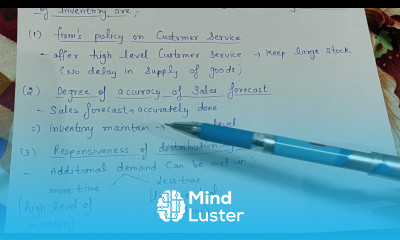 of Inventory are,
(1) firm's policy on Customer Service
- offer high level Customer service → keep large stock
(No delay in supply of goods)
(2) Degree of accuracy of Sales forecast
- Sales forecast → accurately done
⇒ Inventory maintain → level
(3) Responsiveness of distribution
- Additional demand Can be met in:
more time less time
(high level of
inventory)
Mind
Luster